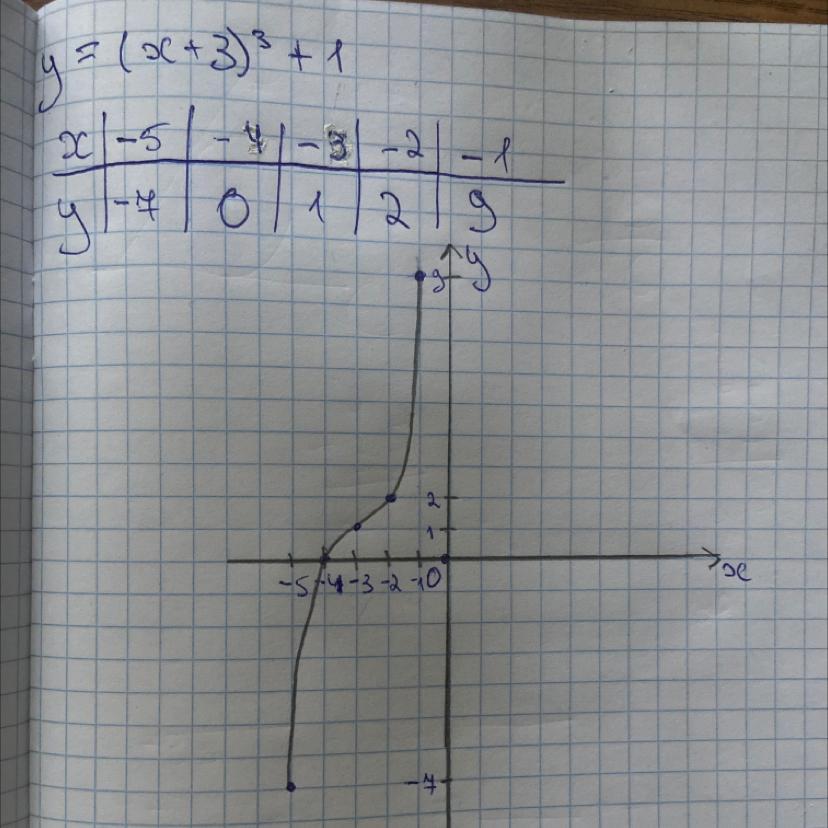 y = (x+3)³ + 1
x | -5 | -4 | -3 | -2 | -1
y | -7 | 0 | 1 | 2 | 9
y
9
2
1
-5 -4 -3 -2 -1 0 x
-7